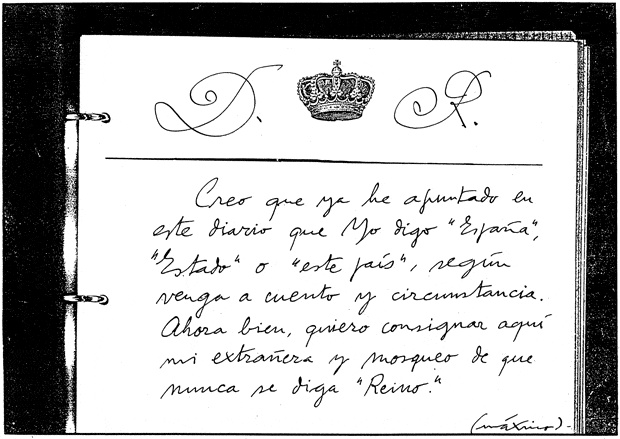 D. R.
Creo que ya he apuntado en
este diario que Yo digo "España",
"Estado" o "este país", según
venga a cuento y circunstancia.
Ahora bien, quiero consignar aquí
mi extrañera y mosqueo de que
nunca se diga "Reino."
(máximo)-